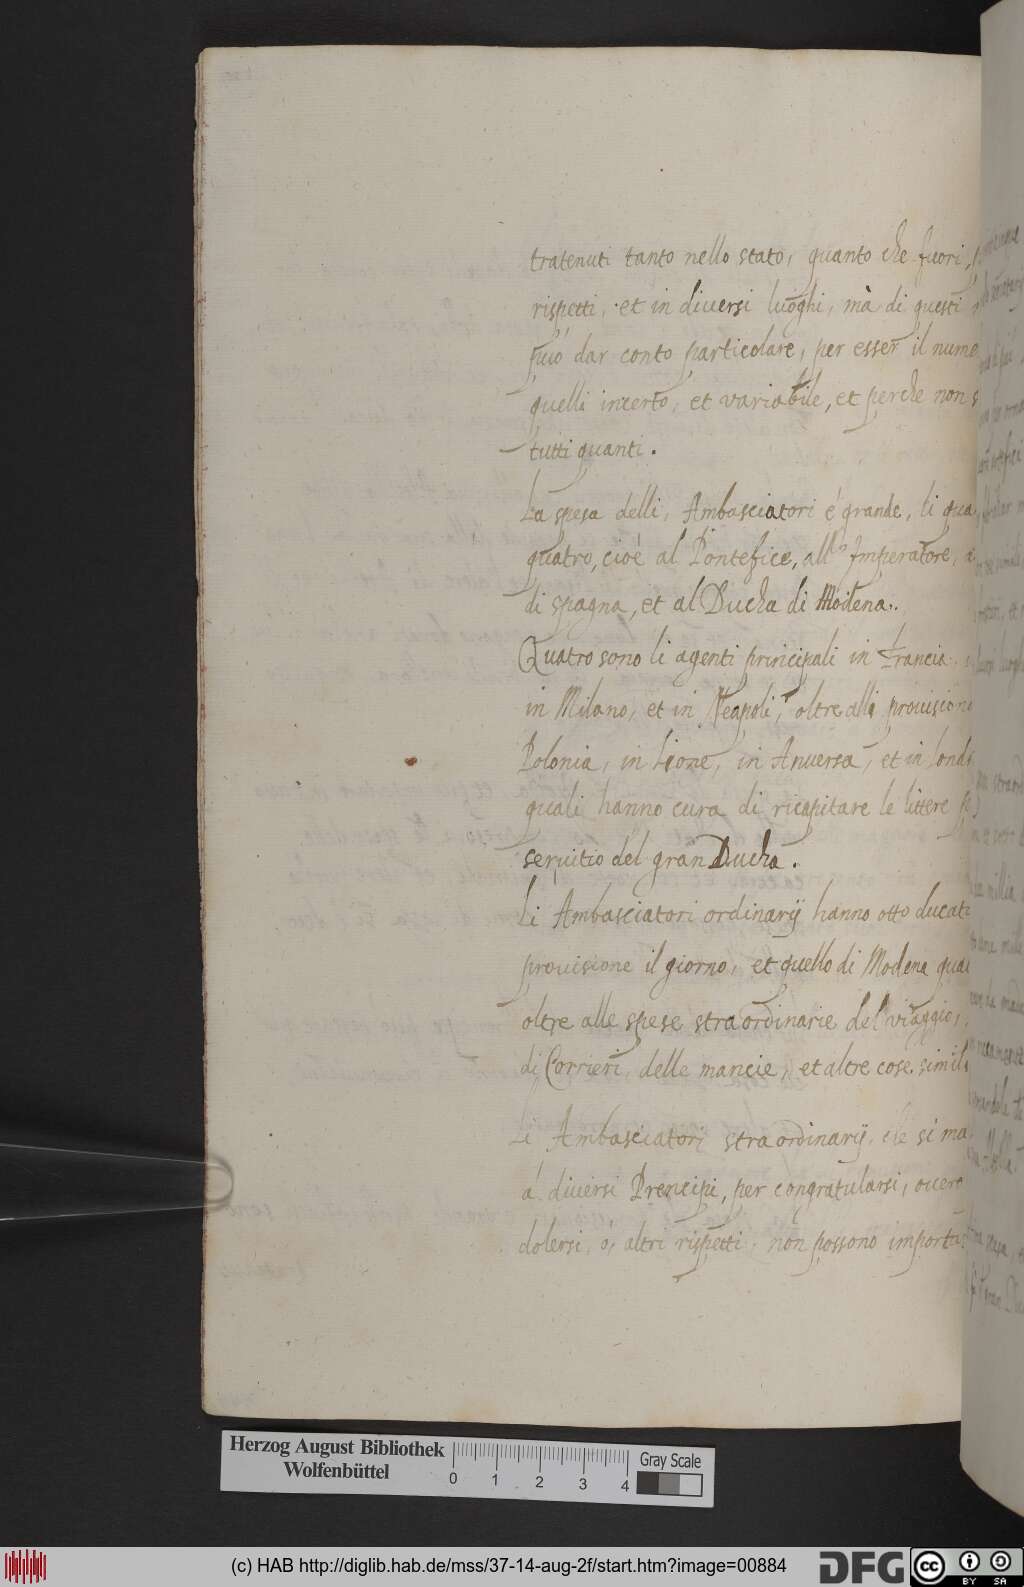 tratenuti tanto nello stato, quanto che fuori,
rispetti, et in diuersi luoghi, mà di questi
può dar conto particolare, per esser il nume
quelli incerto, et variabile, et perche non s
tutti quanti.
La spesa delli, Ambasciatori é grande, li qua
quatro, cioé al Pontefice, all' Imperatore, a
di spagna, et al Ducha di Modena.
Quatro sono li agenti principali in Francia,
in Milano, et in Neapoli, oltre alli prouision
Polonia, in Lione, in Anuersa, et in Lond
quali hanno cura di ricapitare le littere p
seruitio del gran Ducha.
Li Ambasciatori ordinarij hanno otto ducati
prouisione il giorno, et quello di Modena qua
oltre alle spese straordinarie del viaggio,
di Corrieri, delle mancie, et altre cose simili
Li Ambasciatori straordinarij, che si ma
á diuersi Prencipi, per congratularsi, ouero
dolersi, ó, altri rispetti, non possono importa
Herzog August Bibliothek
Wolfenbüttel
0 1 2 3 4
Gray Scale
(c) HAB http://diglib.hab.de/mss/37-14-aug-2f/start.htm?image=00884
DFG
cc BY SA